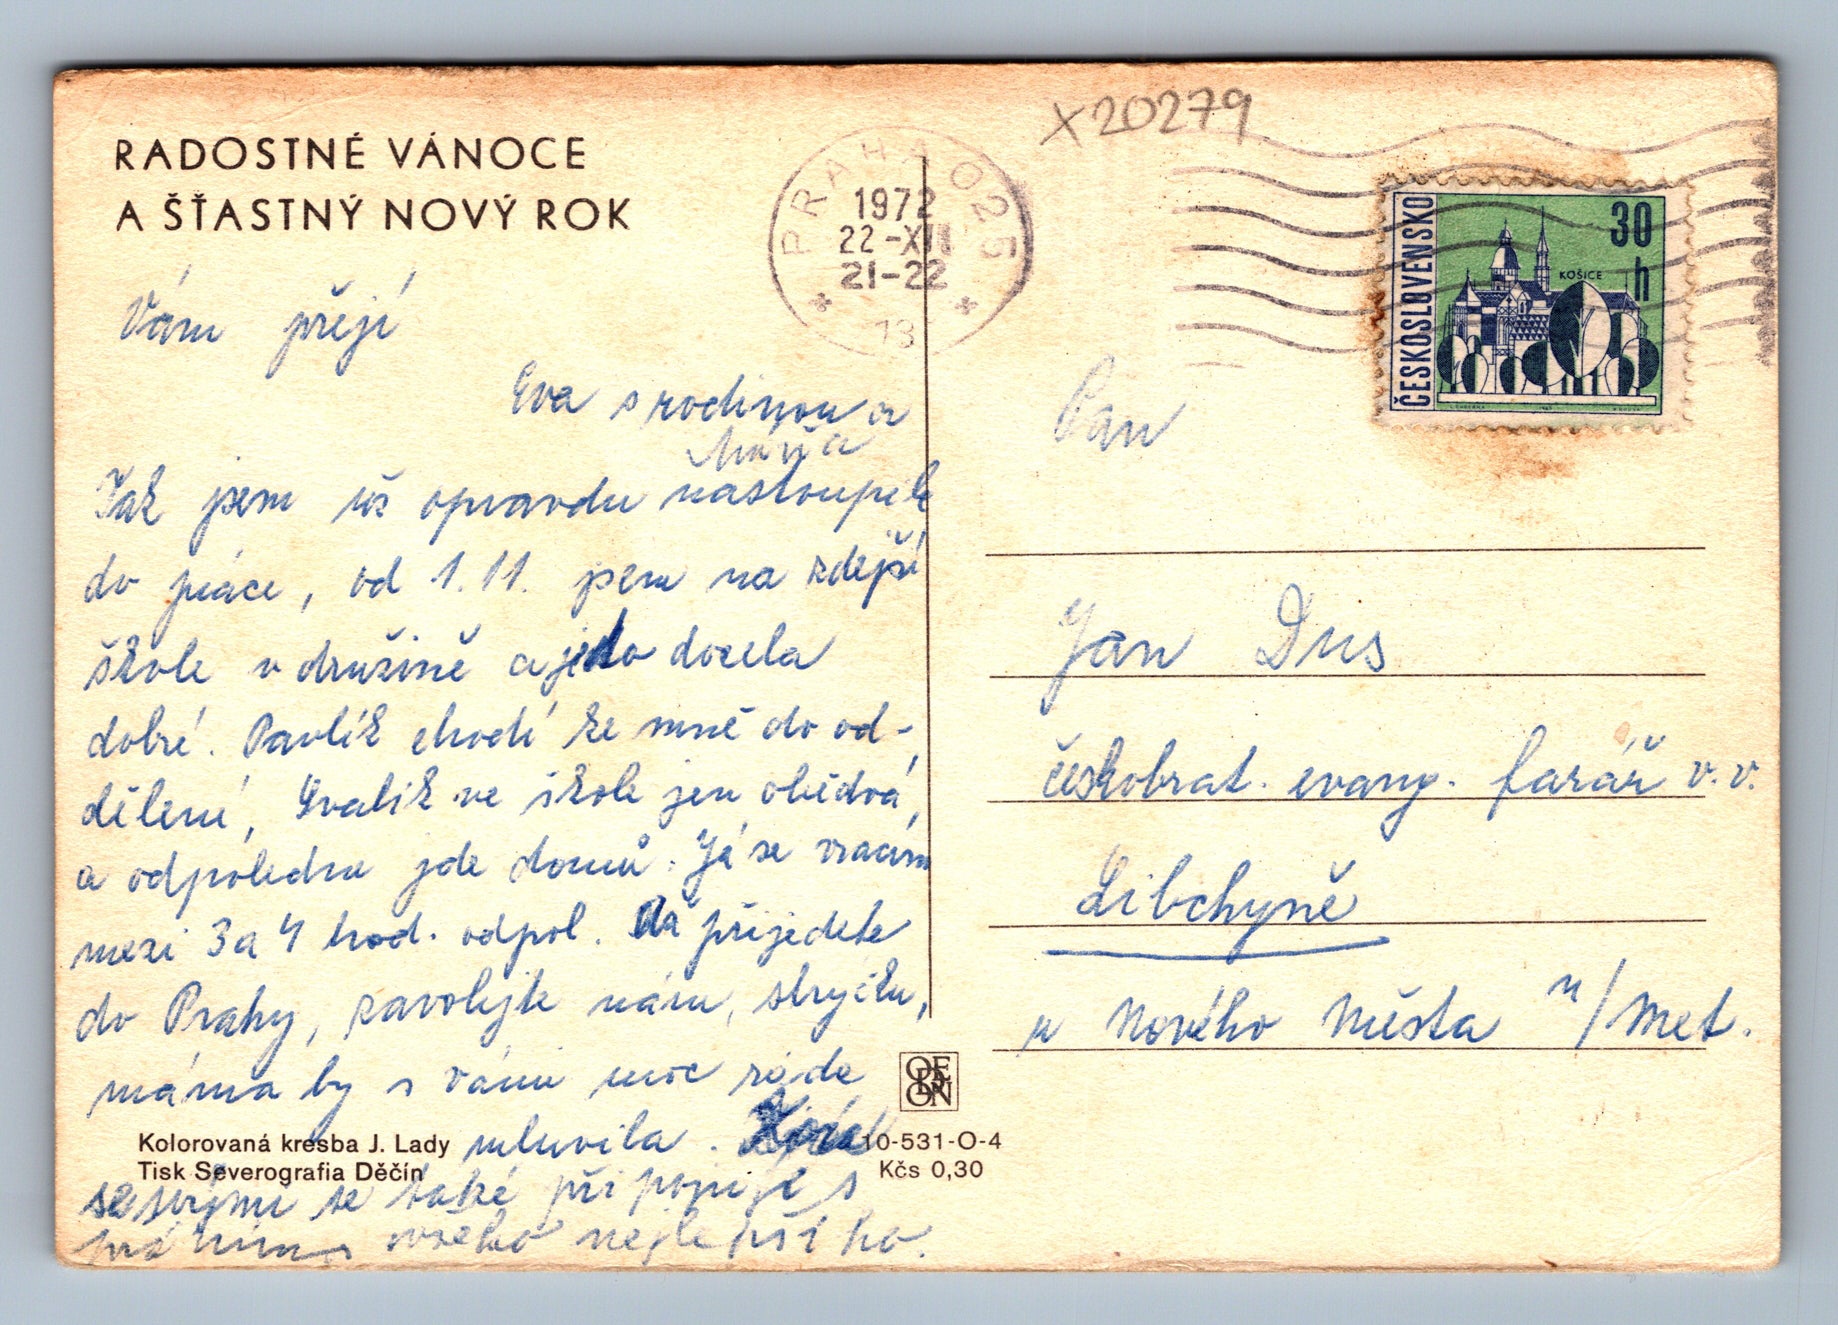 RADOSTNÉ VÁNOCE
A ŠŤASTNÝ NOVÝ ROK
Vám přejí
Eva s rodinou a
Máňa
Tak jsem už opravdu nastoupila
do práce, od 1.11. jsem na zdejší
škole v družině a je to docela
dobré. Pavlík chodí ke mně do od-
dělení, Evalík ve škole jen obědvá
a odpoledne jde domů. Já se vracím
mezi 3 a 4 hod. odpol. Až přijedete
do Prahy, zavolejte nám, strýčku,
máma by s Vámi moc ráda
mluvila.
se svými se také připojuje s
přáním všeho nejlepšího.
Kolorovaná kresba J. Lady
Tisk Severografia Děčín
ODEON
10-531-O-4
Kčs 0,30
X20279
PRAHA 025
1972
22-XII
21-22
73
ČESKOSLOVENSKO
30
h
KOŠICE
Pan
Jan Dus
českobrat. evang. farář v.v.
Libchyně
u Nového Města n/Met.